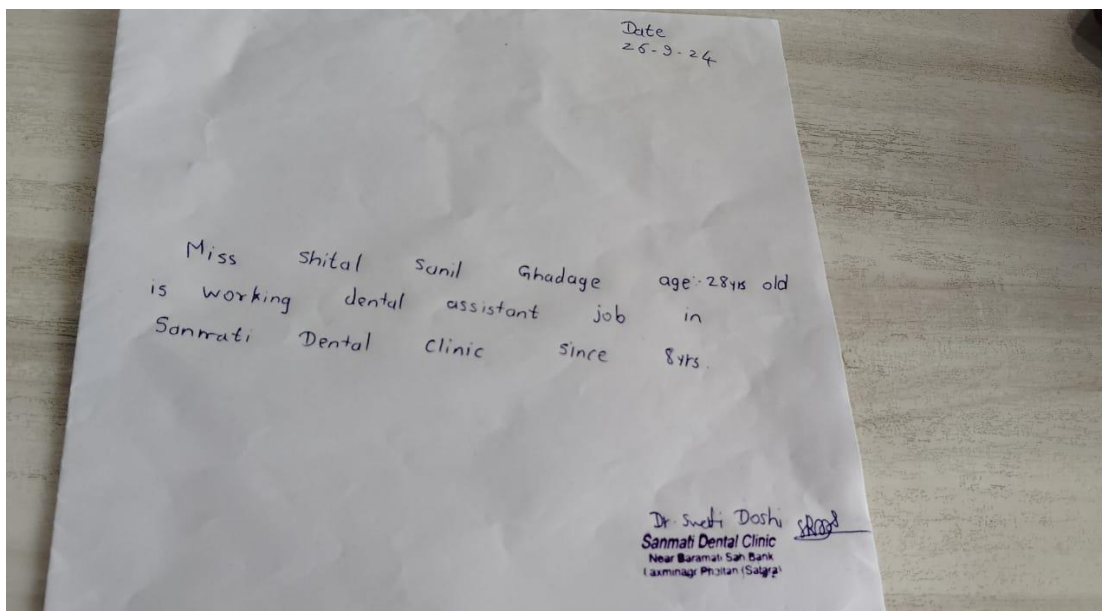 Date
26-9-24
Miss Shital Sunil Ghadage age:-28yrs old
is working dental assistant job in
Sanmati Dental Clinic since 8yrs.
Dr. Doshi
Sanmati Dental Clinic
Near Baramati Sah Bank
Laxminagr Phaltan (Satara)